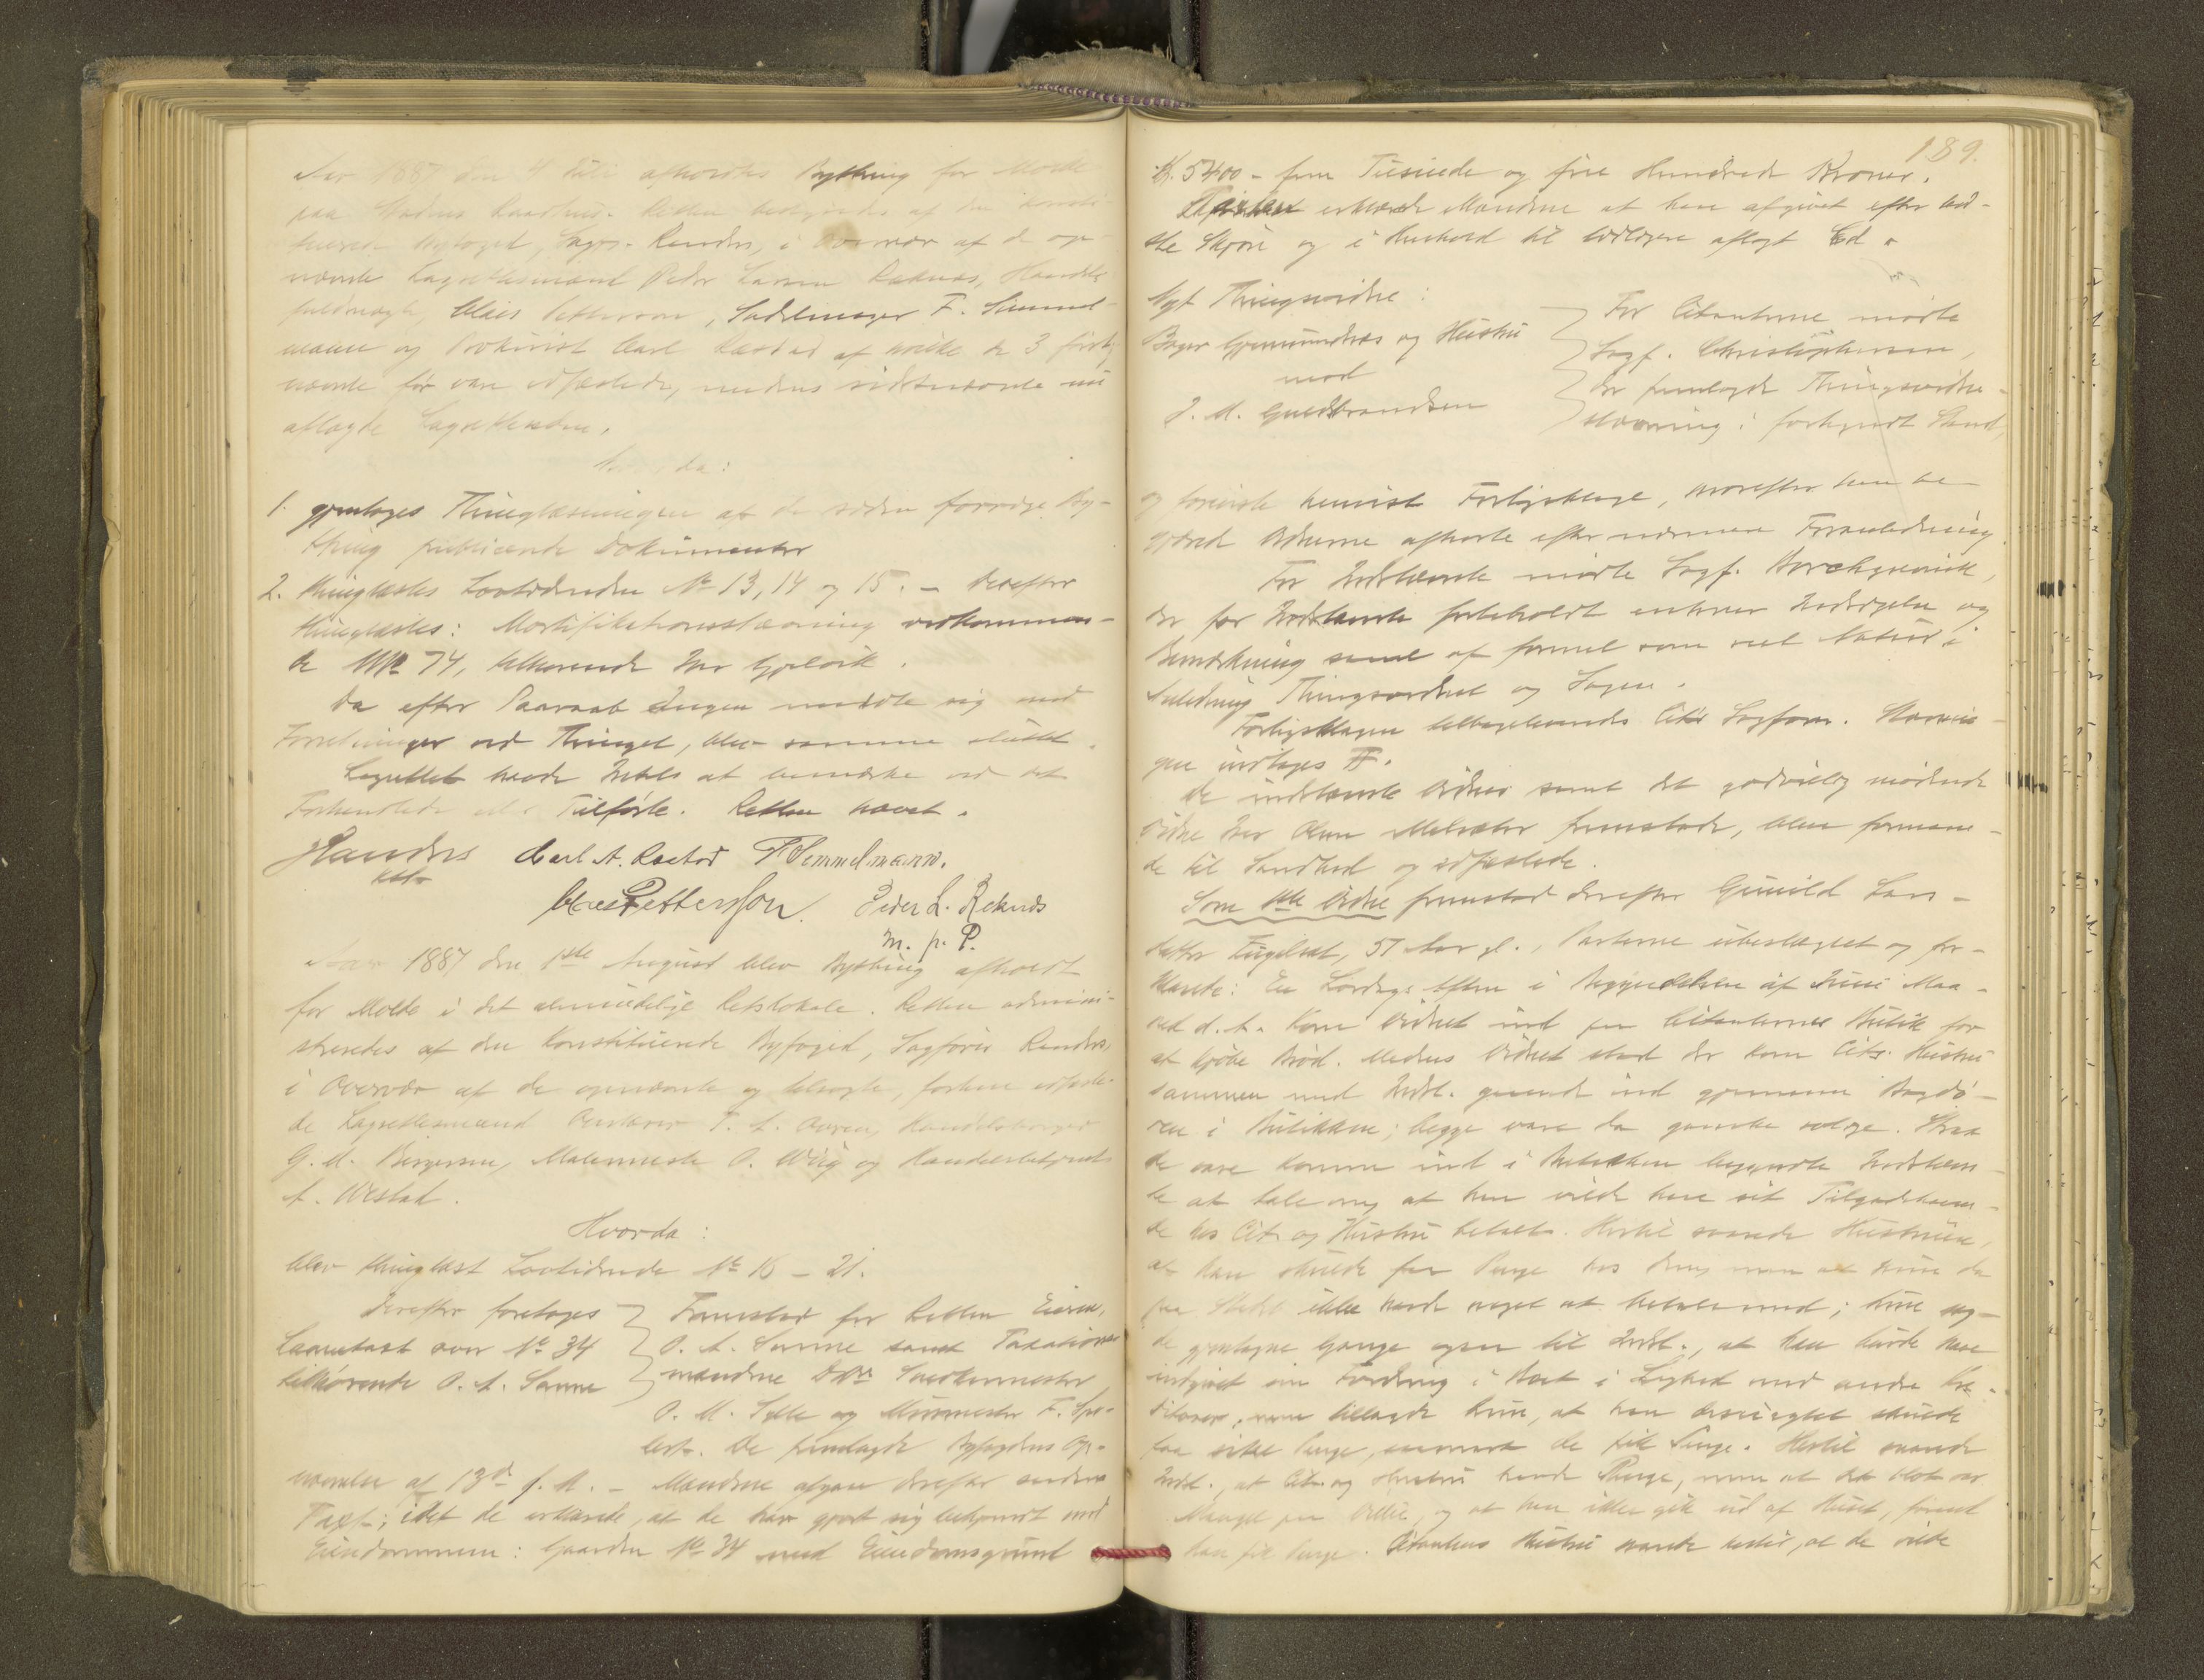 Aar 1887 den 4 Juli afholdtes Bything for Molde
paa Stadens Raadhus. Retten betjentes af den konsti-
tuerede Byfoged, Sagf. Randers, i Overvær af de op-
nævnte Lagrettesmænd Peder Larsen Reknes, Handels-
fuldmægtig Claus Petterson, Sadelmager F. Simmel-
mann og Carl Rastad af hvilke de 3 først-
nævnte før vare edfæstede, medens sidstnævnte nu
aflagde Lagretteseden.
Hvorda:
1. gjentoges Thinglæsningen af de siden forrige By-
thing publicerede Dokumenter
2. thinglæstes Lovtidenden No 13, 14 og 15. – Derefter
thinglæstes: Mortifikationsstævning vedkommen-
de 74, tilhørende
Da efter Paaraab Ingen meldte sig med
Forretninger ved Thinget, blev samme sluttet.
Lagrettet havde Intet at bemærke ved det
Forhandlede eller Tilførte. Retten hævet.
Randers Carl A. Rastad F Simmelmann.
kst
Claus Petterson. Peder L. Reknes
m. p. P.
Aar 1887 den 1ste August blev Bything afholdt
for Molde i det almindelige Retslokale. Retten admini-
streredes af den konstituerede Byfoged, Sagfører Randers,
i Overvær af de opnævnte og tilsagte, forhen edfæste-
de Lagrettesmænd
G. M. Birgersen, Malermester O. Wiig og Handelsbetjent
A. Westad.
Hvorda:
blev thinglæst Lovtidende No 16 – 21.
Derefter foretoges
Laanetaxt over No 34
tilhørende O. A. Sanne
Fremstod for Retten Eieren,
O. A. Sanne samt Taxations-
mændene Snedkermester
O. M. Sylte og Murmester F.
De fremlagde Byfogdens Op-
nævnelse af 13de f. M. – Mændene afgave derefter saadan
Taxt; idet de erklærede, at de har gjort sig bekjendt med
Eiendommen: Gaarden No 34 med Eiendomsgrund
189.
Kr. 5400 – fem Tusinde og fire Hundrede Kroner.
Taxten erklærede Mændene at have afgivet efter bed-
ste Skjøn og i Henhold til tidligere aflagt Ed.
Nyt Thingsvidne:
Bager Gjermundnes og Hustru
mod
J. M. Guldbrandsen
For Citanterne mødte
Sagf. Christophersen,
der fremlagde Thingsvidne-
stævning i forkyndt Stand,
og foreviste henvist Forligsklage, hvorefter han be-
gjærede Vidnerne afhørte efter nærmere Foranledning.
For Indstævnte mødte Sagf.
der for Indstævnte forbeholdt enhver Indsigelse og
Bemærkning saavel af formel som reel Natur i
Anledning Thingsvidnet og Sagen.
Forligsklagen tilbageleveredes Cit's Sagfører. Stævnin-
gen indtages
De indstævnte Vidner samt det godvillig mødende
Vidne fremstode, bleve formane-
de til Sandhed og edfæstede.
Som 1ste Vidne fremstod derefter Gunild Lars-
datter Fugelset, 57 Aar gl., Parterne ubeslægtet og for-
klarede: En Lørdags Aften i Begyndelsen af Juni Maa-
ned d. A. kom Vidnet ind paa Citanternes Butik for
at kjøbe Brød. Medens Vidnet stod der kom Cits. Hustru
sammen med Indst. gaaende ind gjennem Bagdø-
ren i Butikken; begge vare da ganske rolige. Strax
de vare komne ind i Butikken begyndte Indstævn-
te at tale om, at han vilde have sit Tilgodehaven-
de hos Cit. og Hustru betalt. Hertil svarede Hustruen,
at han skulde faa Penge hos dem, men at hun da
paa Stedet ikke havde noget at betale med; hun sag-
de gjentagne Gange ogsaa til Indst., at han burde have
indgivet sin Fordring i Boet i Lighed med andre Kre-
ditorer, men tillagde hun, at han desuagtet skulde
faa sine Penge, saasnart de fik Penge. Hertil svarede
Indst., at Cit. og Hustru havde Penge, men at det blot var
Mangel paa Villie, og at han ikke gik ud af Huset, førend
han fik Penge. Citantens Hustru svarede hertil, at de vilde